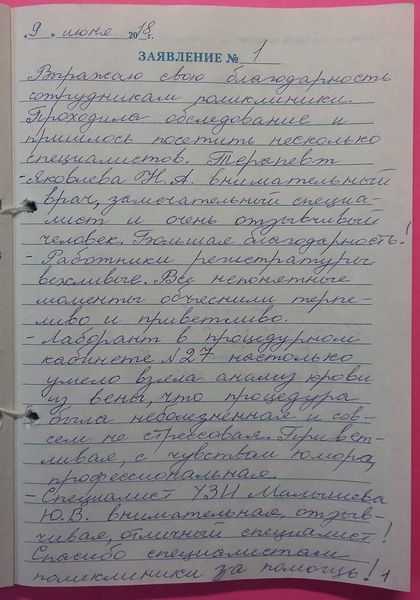 «9» июня 2018 г.
ЗАЯВЛЕНИЕ № 1
Выражаю свою благодарность
сотрудникам поликлиники.
Проходила обследование и
пришлось посетить несколько
специалистов. Терапевт
- Яковлева Н.А. внимательный
врач, замечательный специа-
лист и очень отзывчивый
человек. Большая благодарность!
- Работники регистратуры
вежливые. Все непонятные
моменты объяснили терпе-
ливо и приветливо.
- Лаборант в процедурном
кабинете №27 настолько
умело взяла анализ крови
из вены, что процедура
была неболезненная и сов-
сем не стрессовая. Привет-
ливая, с чувством юмора,
профессиональная.
- Специалист УЗИ Малышева
Ю.В. внимательная, отзыв-
чивая, отличный специалист!
Спасибо специалистам
поликлиники за помощь! 1